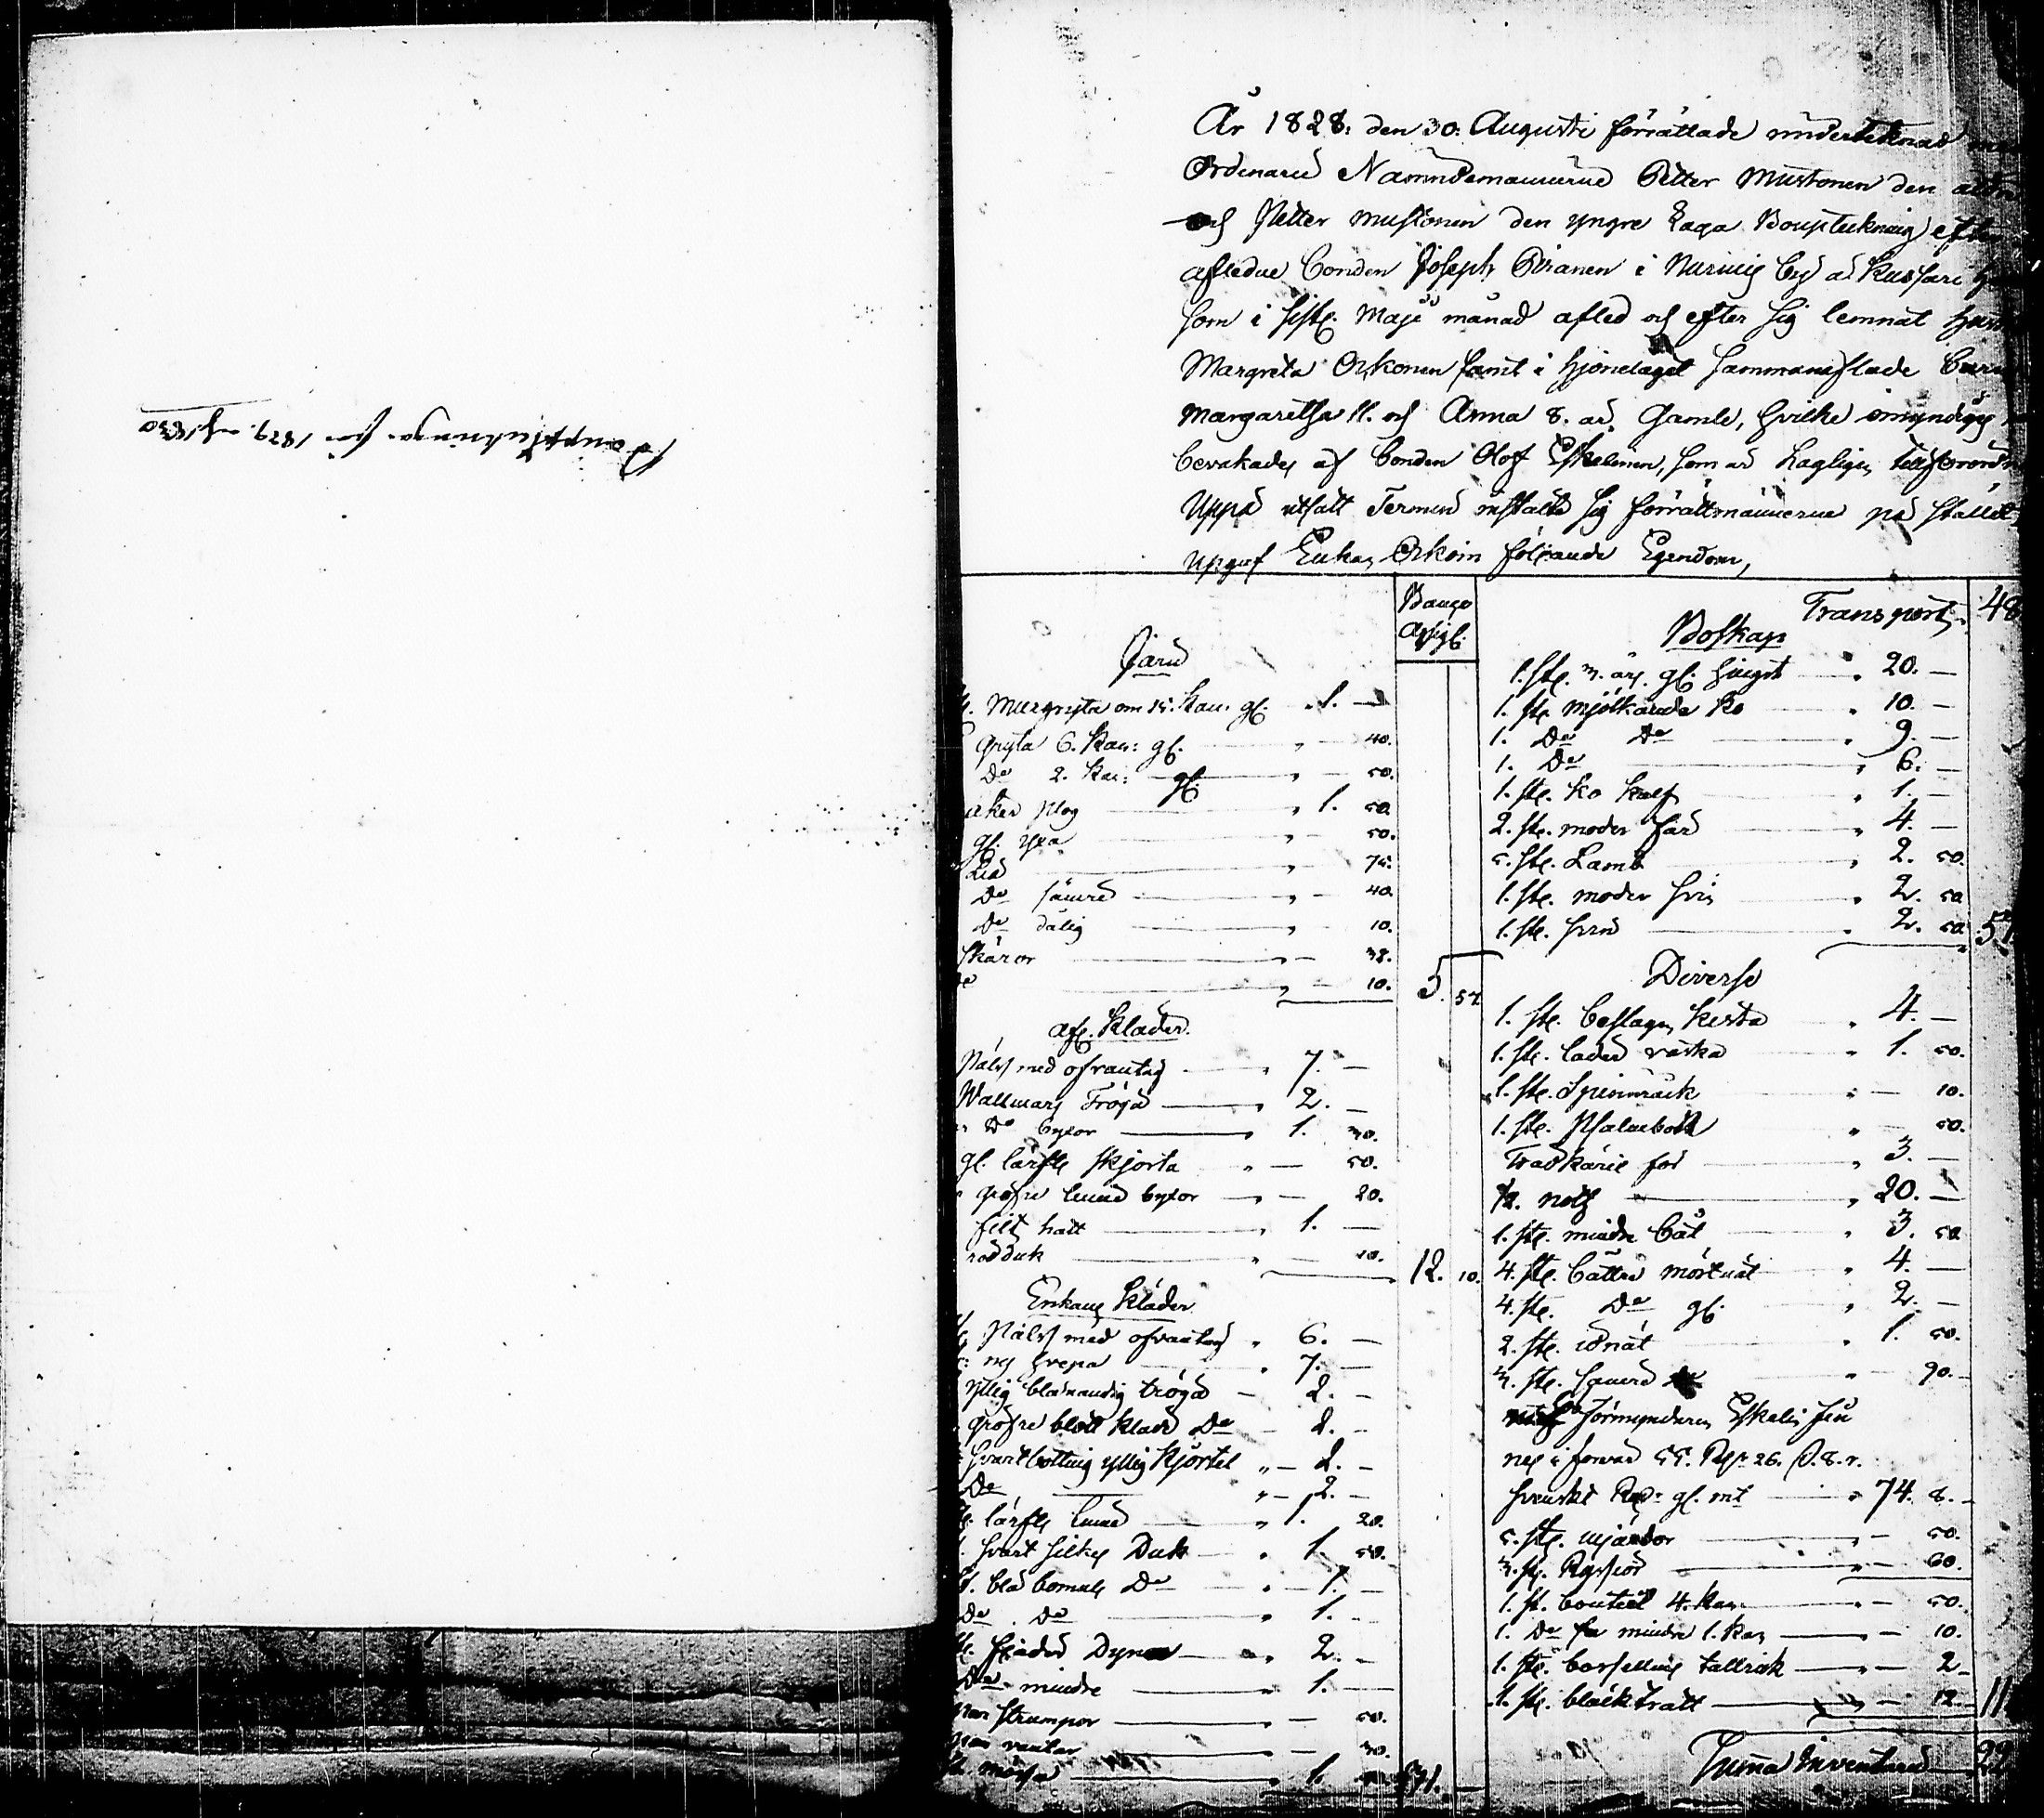 Bouppteckningar för 1829. och 1830
År 1828: den 30: Augusti förrättade undertecknad med
Ordinarie Nämndemännerne Petter Mustonen den äldre
och Petter Mustonen den yngre Laga Bouptekning efter
afledne bonden Joseph Piranen i by
som i sistl. Maji månad afled och efter sig lemnat
Margreta Oikonen samt i hjonelaget sammanaflade
Margaretha 11. och Anna 8. år Gamle, hvilke omyndige
bevakades af bonden Olof Eskelinen, som är Lagligen
Uppå utsatt Termin instälte sig förrättmännerne på stället
upgaf Enkan Oikoin följande Egendom,
Banco
Assign:
Järn
Murgryta om 15. Kan: gl. 1. —
Gryta 6. Kan: gl. — 40.
Do 2. Kan: gl. — 50.
åker plog 1. 50.
gl. yxa — 50.
Lia — 75.
Do sämre — 40.
Do dålig — 10.
Skäror — 32.
— 10.
5. 57.
afl. Kläder.
Päls med ofvantyg 7. —
Wallmars Tröja 2. —
Do byxor 1. 30.
gl. lärfts skjorta — 50.
gröfre linne byxor — 20.
filt hatt 1. —
röd duk — 10.
12. 10.
Enkans Kläder
Päls med ofvantyg 6. —
ny 7. —
yllig blårandig tröja 2. —
gröfre blått kläde Do 2. —
Svart bottnig yllig Kjortel 2. —
Do 2. —
lärfts linne 1. 20.
Svart silkes Duk 1. 50.
blå bomuls Do 1. —
Do Do 1. —
fjäder Dyna 2. —
Do mindre 1. —
par strumpor — 50.
par vantar — 30.
mössa 1.
31. —
Transport 48
Boskap
1. st. 3. års gl. hingst 20. —
1. st. mjölkande Ko 10. —
1. Do Do 9. —
1. Do 6. —
1. st. Ko Kalf 1. —
2. st. moder får 4. —
5. st. Lamb 2. 50.
1. st. moder svin 2. 50
1. st. svin 2. 50
57
Diverse
1. st. beslagen Kista 4. —
1. st. läder väska 1. 50.
1. st. Spinnråck — 10.
1. st. Psalmbok — 50.
för 3. —
1/2. noth 20. —
1. st. mindre båt 3. 50
4. st. bättre mörtnät 4. —
4. st. Do gl. 2. —
2. st. idnät 1. 50.
3. st. sämre 90.
Förmyndaren Eskelin fin
nes i förvar 55. Rp. 26. s. 8. r.
Svenskt gl. mt 74. 8.
5. st. mjärdor — 50.
3. st. Ryssior — 60.
1. st. bouteil 4. Kan — 50.
1. Do mindre 1. Kan — 10.
1. st. porsellins tallrik — 2
1. st. bläck tratt — 12
11
Suma Inventarie 22